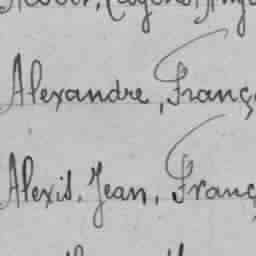 Alexandre, Franç
Alexis, Jean, Franç